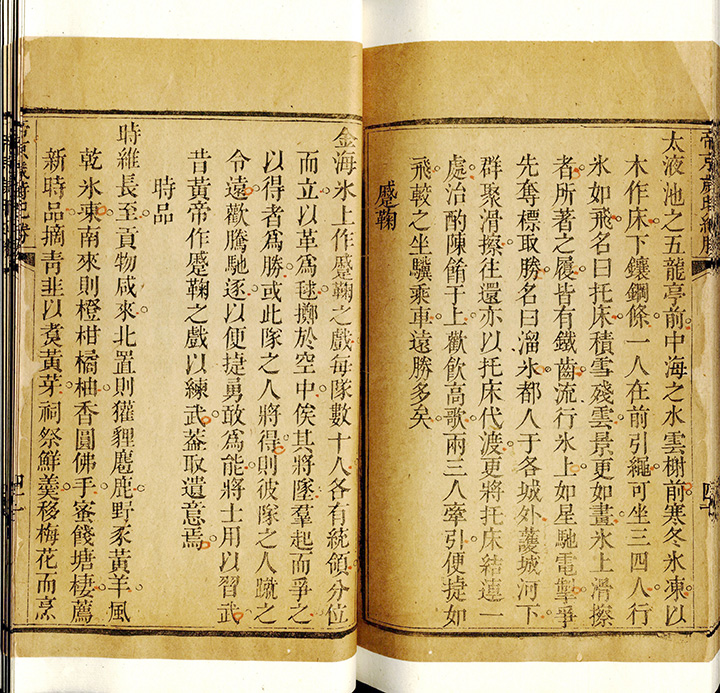 太液池之五龍亭前中海之水雲榭前寒冬氷凍以
木作床下鑲鋼條一人在前引繩可坐三四人行
氷如飛名曰托床積雪殘雲景更如畫氷上滑擦
者所著之履皆有鐵齒流行氷上如星馳電掣爭
先奪標取勝名曰溜氷都人于各城外護城河下
群聚滑擦往還亦以托床代渡更將托床結連一
處治酌陳餚于上歡飲高歌兩三人牽引便捷如
飛較之坐驥乘車遠勝多矣
蹙鞠
帝京歲時紀勝
金海氷上作蹙鞠之戲每隊數十人各有統領分位
而立以革爲毬擲於空中俟其將墜羣起而爭之
以得者爲勝或此隊之人將得則彼隊之人蹴之
令遠歡騰馳逐以便捷勇敢爲能將士用以習武
昔黃帝作蹙鞠之戲以練武葢取遺意焉
時品
時維長至貢物咸來北置則獾貍麅鹿野豕黃羊風
乾氷凍南來則橙柑橘柚香圓佛手蜜餞塘棲薦
新時品摘靑韭以煑黃芽祠祭鮮羹移梅花而烹
帝京歲時紀勝